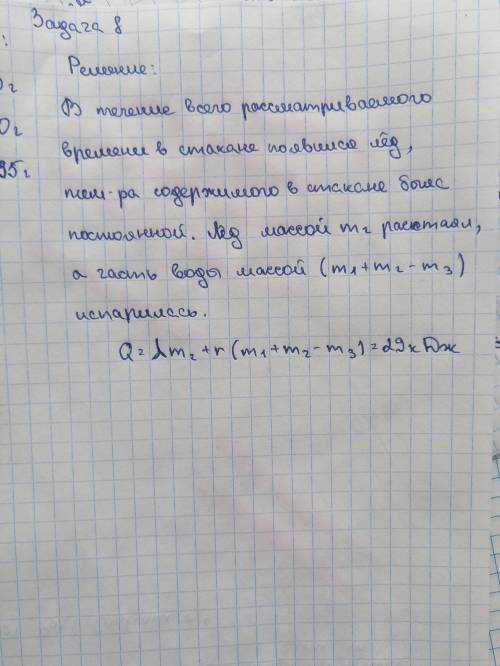 Задача 8
:
Решение:
0г
В течение всего рассматриваемого
0г
времени в стакане появился лёд,
95г
тем-ра содержимого в стакане была
постоянной. Лёд массой m₂ растаял,
а часть воды массой (m₁+m₂-m₃)
испарилась.
Q = λm₂ + r (m₁+m₂-m₃) = 29кДж